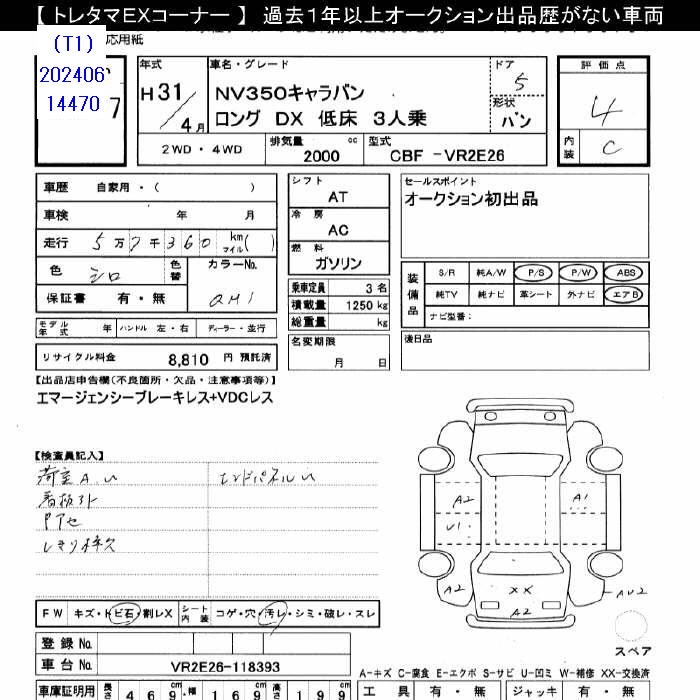 【 トレタマEXコーナー 】 過去１年以上オークション出品歴がない車両
応用紙
(T1)
202406
14470
7
年式
H 31 / 4 月
車名・グレード
NV350キャラバン
ロング DX 低床 3人乗
ドア
5
形状
バン
評価点
4
内装
C
2WD・4WD
排気量
2000 cc
型式
CBF -VR2E26
車歴 自家用・( )
車検 年 月
走行 5万7千360 km マイル( )
色 シロ 色替 カラーNo. QM1
保証書 有・無
モデル年式 年 ハンドル 左・右 ディーラー・並行
リサイクル料金 8,810 円 預託済
シフト
AT
冷房
AC
燃料
ガソリン
乗車定員 3 名
積載量 1250 kg
総重量 kg
名変期限
月 日
セールスポイント
オークション初出品
装備品
S/R 純A/W P/S P/W ABS
純TV 純ナビ 革シート 外ナビ エアB
ナビ型番：
後日品
【出品店申告欄(不良箇所・欠品・注意事項等)】
エマージェンシーブレーキレス+VDCレス
【検査員記入】
荷室A.U
エンドパネルU
看板外
Pアセ
しきり枠欠
A2
U1
A1
A2
XX
A2
AU2
スペア
FW キズ・トビ石・割レX シート内装 コゲ・穴・汚レ・シミ・破レ・スレ
登録 No.
車台 No. VR2E26-118393
A-キズ C-腐食 E-エクボ S-サビ U-凹ミ W-補修 XX-交換済
車庫証明用 長さ 4 6 9 cm 幅 1 6 9 cm 高さ 1 9 9 cm
工具 有・無 ジャッキ 有・無